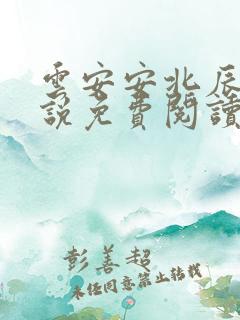 雲安安北辰
說免費閱讀
彭善超
未任同意禁止转载